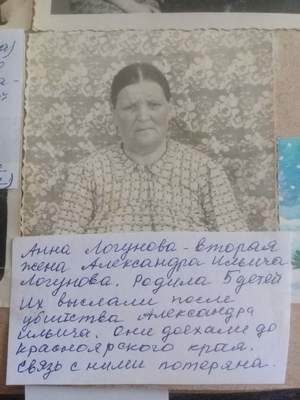 Анна Логунова - вторая
жена Александра Ильича
Логунова. Родила 5 детей
Их выслали после
убийства Александра
Ильича. Они доехали до
Красноярского края.
Связь с ними потеряна.